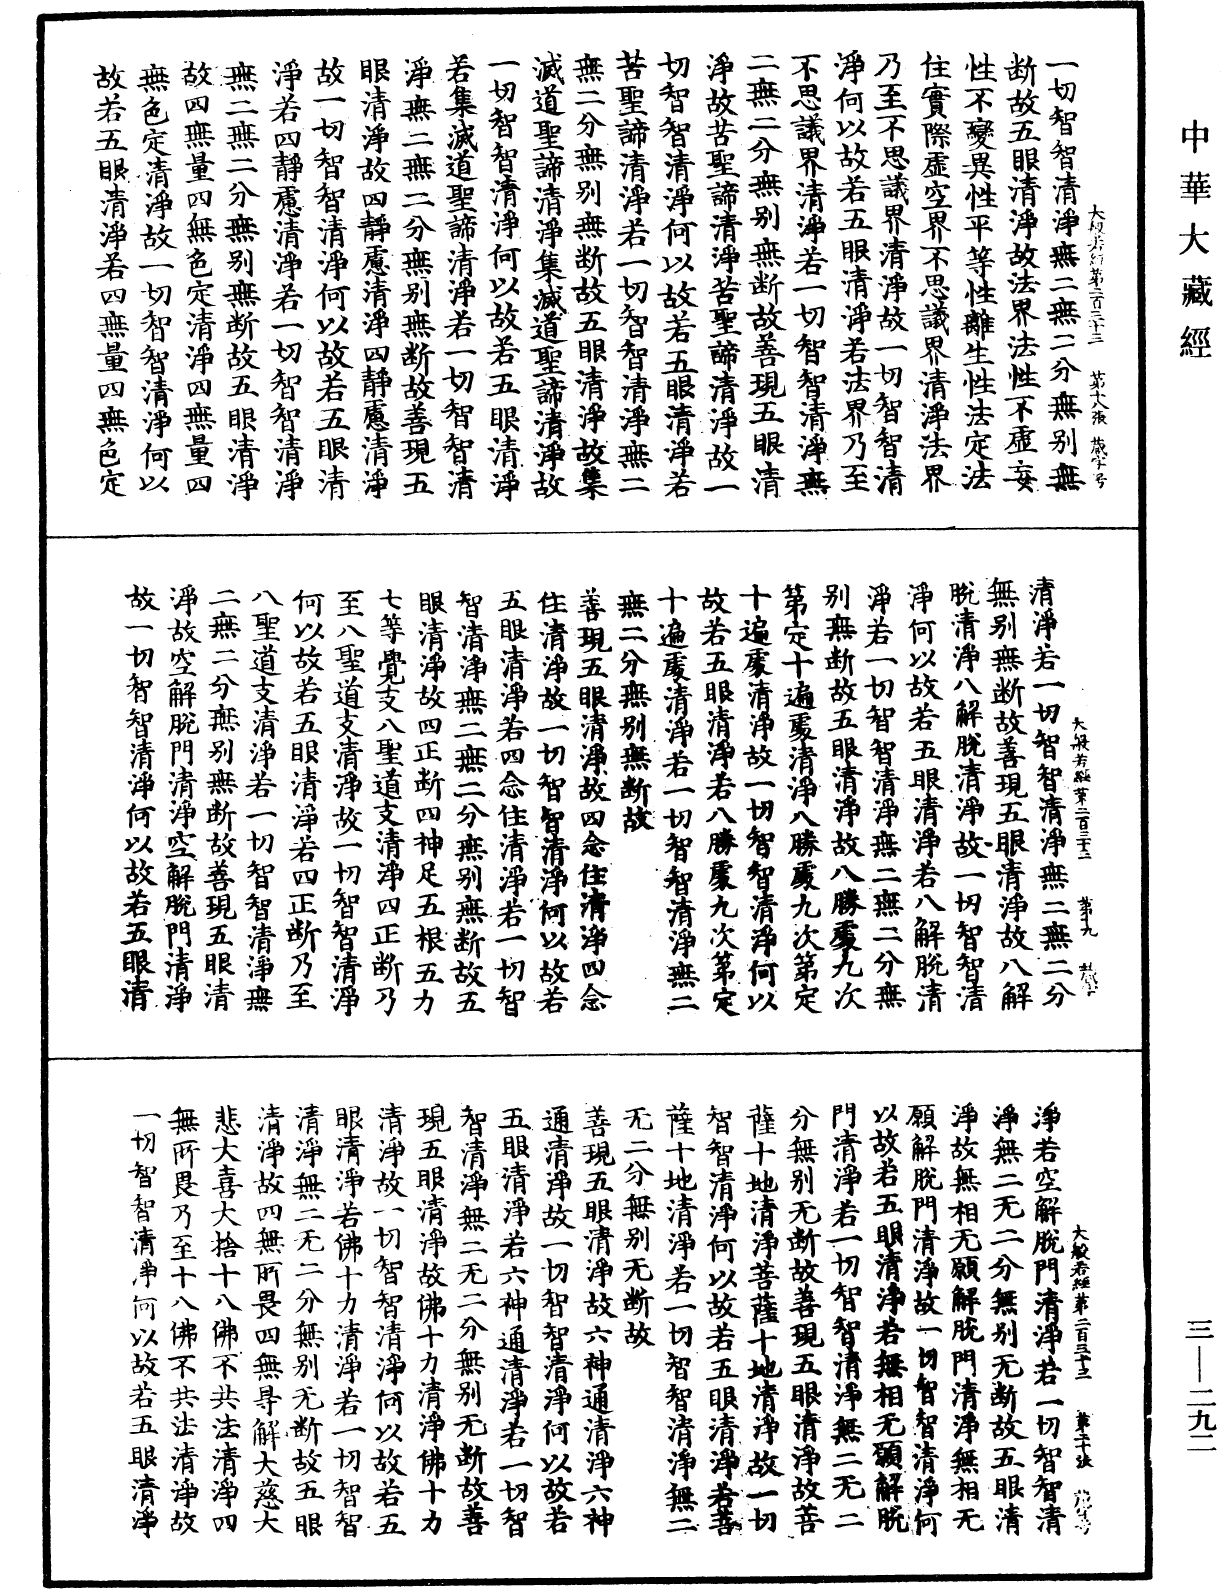 中華大藏經
大般若經第二百三十三 第十八張 藏字号
一切智智清淨無二無二分無別無
断故五眼清淨故法界法性不虛妄
性不變異性平等性離生性法定法
住實際虛空界不思議界清淨法界
乃至不思議界清淨故一切智智清
淨何以故若五眼清淨若法界乃至
不思議界清淨若一切智智清淨無
二無二分無別無断故善現五眼清
淨故苦聖諦清淨苦聖諦清淨故一
切智智清淨何以故若五眼清淨若
苦聖諦清淨若一切智智清淨無二
無二分無別無断故五眼清淨故集
滅道聖諦清淨集滅道聖諦清淨故
一切智智清淨何以故若五眼清淨
若集滅道聖諦清淨若一切智智清
淨無二無二分無別無断故善現五
眼清淨故四靜慮清淨四靜慮清淨
故一切智智清淨何以故若五眼清
淨若四靜慮清淨若一切智智清淨
無二無二分無別無断故五眼清淨
故四無量四無色定清淨四無量四
無色定清淨故一切智智清淨何以
故若五眼清淨若四無量四無色定
大般若經第二百三十三 第十九 藏字
清淨若一切智智清淨無二無二分
無別無断故善現五眼清淨故八解
脫清淨八解脫清淨故一切智智清
淨何以故若五眼清淨若八解脫清
淨若一切智智清淨無二無二分無
別無断故五眼清淨故八勝處九次
第定十遍處清淨八勝處九次第定
十遍處清淨故一切智智清淨何以
故若五眼清淨若八勝處九次第定
十遍處清淨若一切智智清淨無二
無二分無別無断故
善現五眼清淨故四念住清淨四念
住清淨故一切智智清淨何以故若
五眼清淨若四念住清淨若一切智
智清淨無二無二分無別無断故五
眼清淨故四正断四神足五根五力
七等覺支八聖道支清淨四正断乃
至八聖道支清淨故一切智智清淨
何以故若五眼清淨若四正断乃至
八聖道支清淨若一切智智清淨無
二無二分無別無断故善現五眼清
淨故空解脫門清淨空解脫門清淨
故一切智智清淨何以故若五眼清
大般若經第二百三十三 第二十張 藏字号
淨若空解脫門清淨若一切智智清
淨無二无二分無別无断故五眼清
淨故無相无願解脫門清淨無相无
願解脫門清淨故一切智智清淨何
以故若五眼清淨若無相无願解脫
門清淨若一切智智清淨無二无二
分無別无断故善現五眼清淨故菩
薩十地清淨菩薩十地清淨故一切
智智清淨何以故若五眼清淨若菩
薩十地清淨若一切智智清淨無二
无二分無別无断故
善現五眼清淨故六神通清淨六神
通清淨故一切智智清淨何以故若
五眼清淨若六神通清淨若一切智
智清淨無二无二分無別无断故善
現五眼清淨故佛十力清淨佛十力
清淨故一切智智清淨何以故若五
眼清淨若佛十力清淨若一切智智
清淨無二无二分無別无断故五眼
清淨故四無所畏四無㝵解大慈大
悲大喜大捨十八佛不共法清淨四
無所畏乃至十八佛不共法清淨故
一切智智清淨何以故若五眼清淨
三—二九二